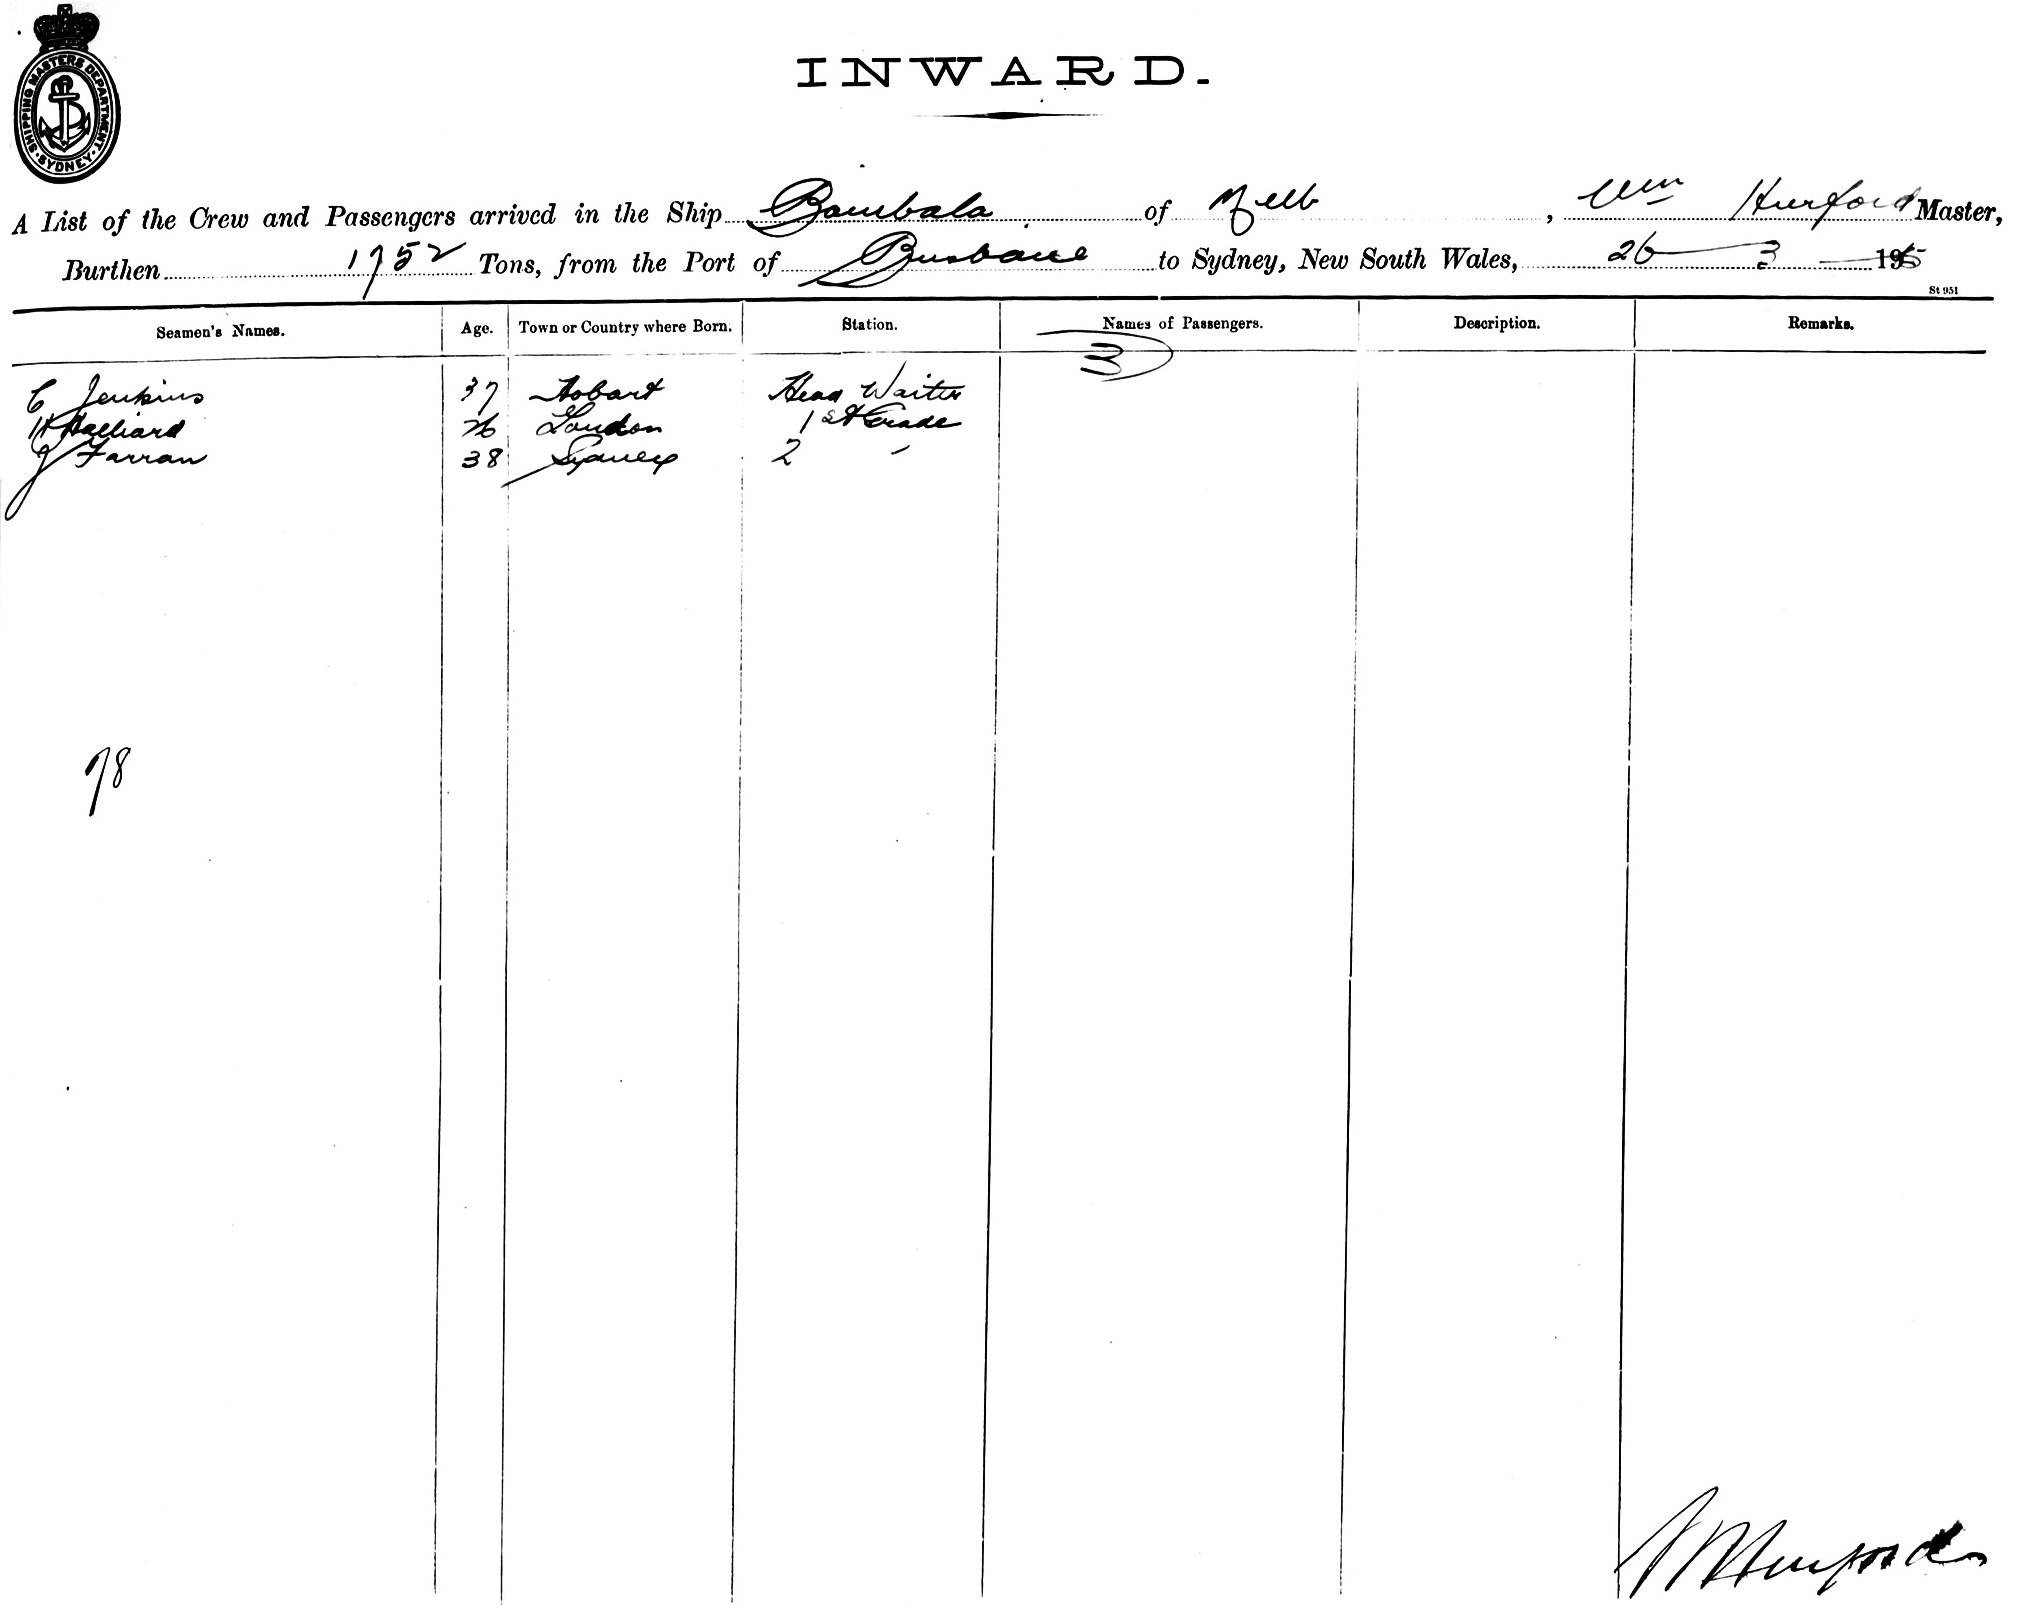 SHIPPING MASTERS DEPARTMENT
SYDNEY
INWARD.
A List of the Crew and Passengers arrived in the Ship Bombala of Melb, Wm Hurford Master,
Burthen 1752 Tons, from the Port of Brisbane to Sydney, New South Wales, 26 3 19
St 951
Seamen's Names. Age. Town or Country where Born. Station. Names of Passengers. Description. Remarks.
3
C Jenkins 37 Hobart Head Waiter
H Halliard 26 London 1st Grade
J Farran 38 Sydney 2 "
78
Hurford